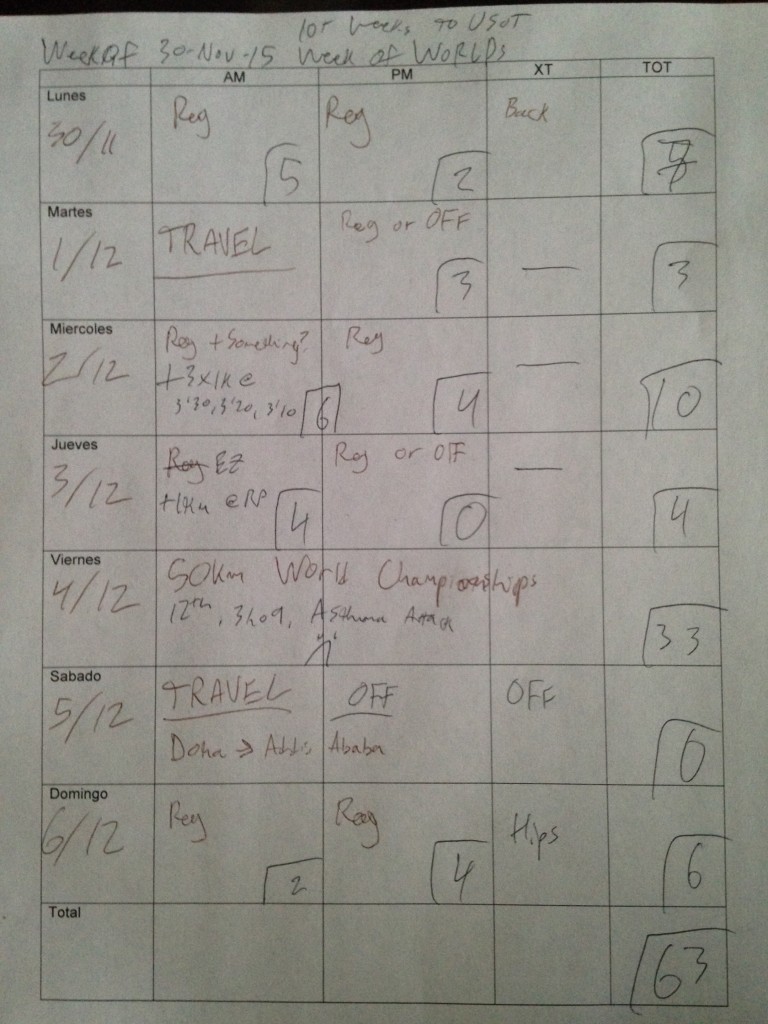 10+ weeks to USOT
Week of 30-Nov-15 Week of WORLDS
AM PM XT TOT
Lunes
30/11 Reg Reg Back
5 2 7
Martes
1/12 TRAVEL Reg or OFF —
3 3
Miercoles
2/12 Reg + Something? Reg —
+3x1k @
3'30, 3'20, 3'10 6 4 10
Jueves
3/12 Reg EZ Reg or OFF —
+1km @RP 4 0 4
Viernes
4/12 50km World Championships
12th, 3h09, Asthma Attack
33
Sabado
5/12 TRAVEL OFF OFF
Doha → Addis Ababa 0
Domingo
6/12 Reg Reg Hips
2 4 6
Total
63